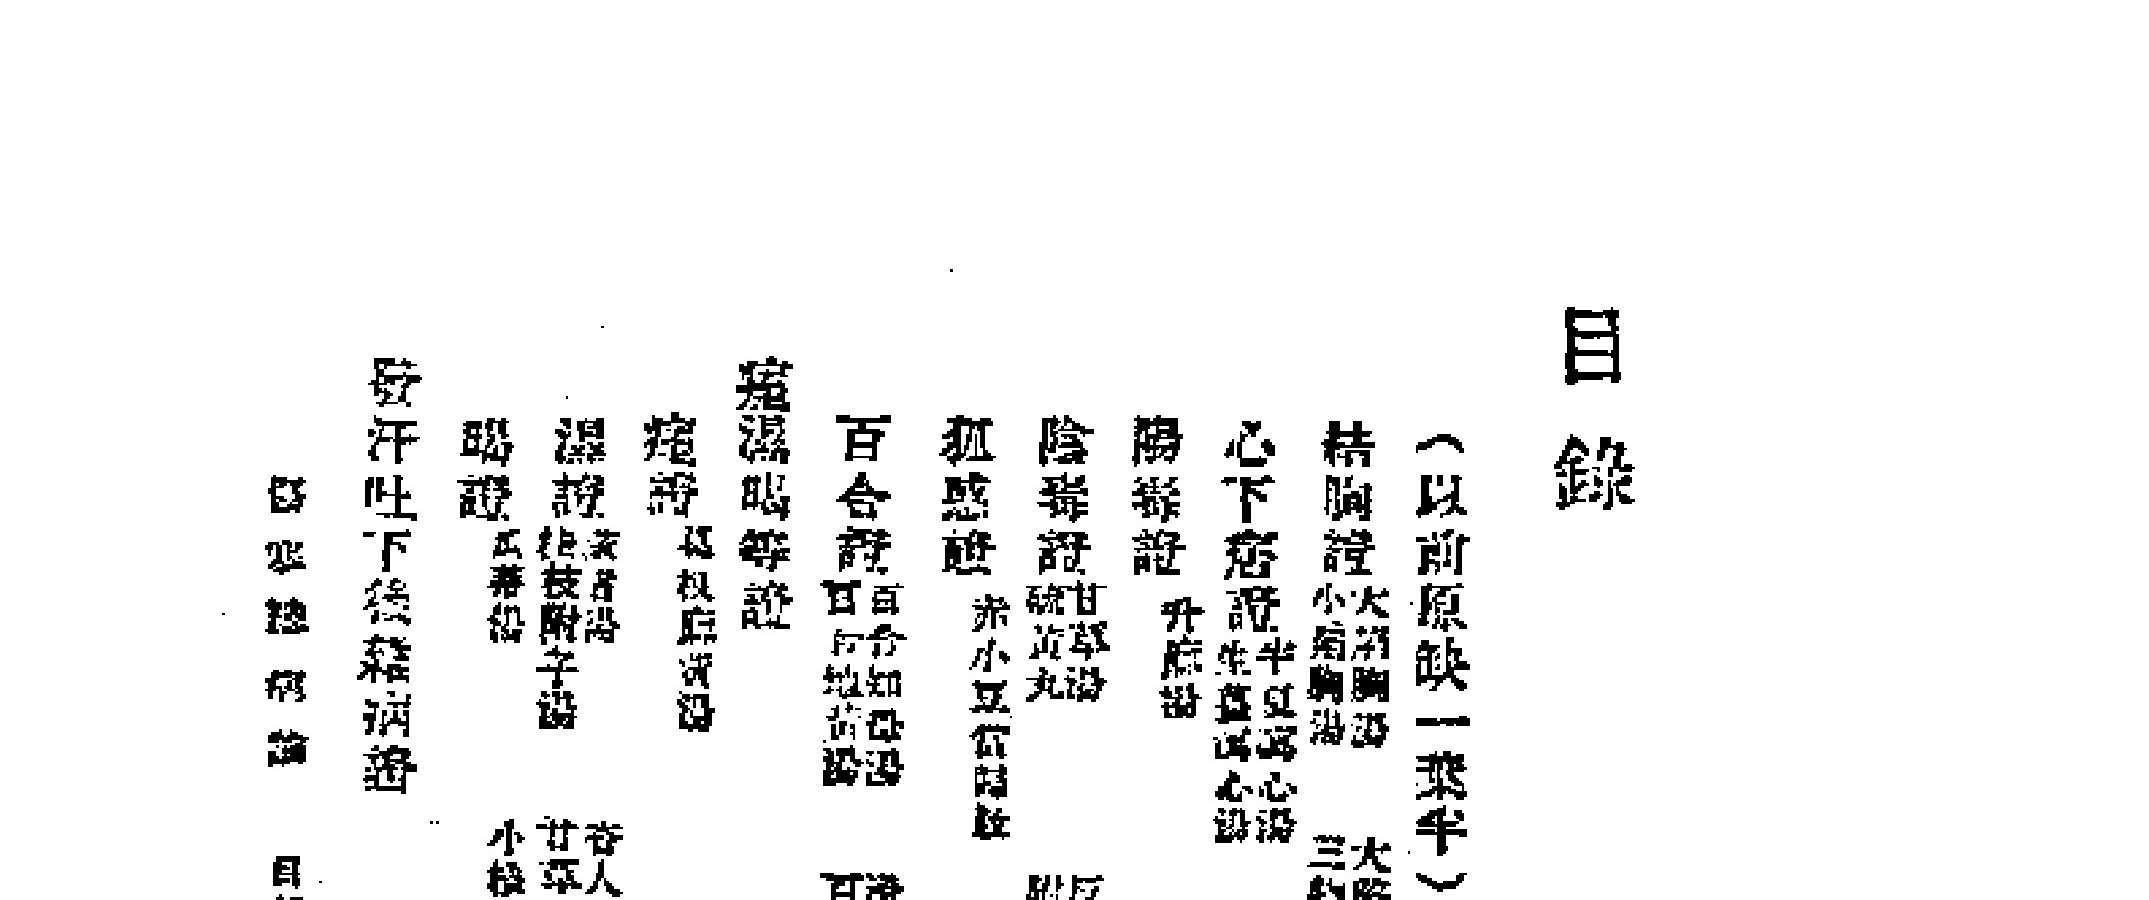 目錄
(以前原缺一葉半)
結胸證
大陷胸湯 大
小陷胸湯 三
心下痞證
半夏瀉心湯
生薑瀉心湯
陽毒證
升麻湯
陰毒證
甘草湯
硫黃丸
狐惑證
赤小豆當歸散
百合證
百合知母湯
百合地黃湯 百
痙濕暍等證
痙證
葛根麻黃湯
濕證
黃耆湯
桂枝附子湯 甘草
暍證
瓜蒂湯 小
發汗吐下後雜病證
傷寒總病論 目